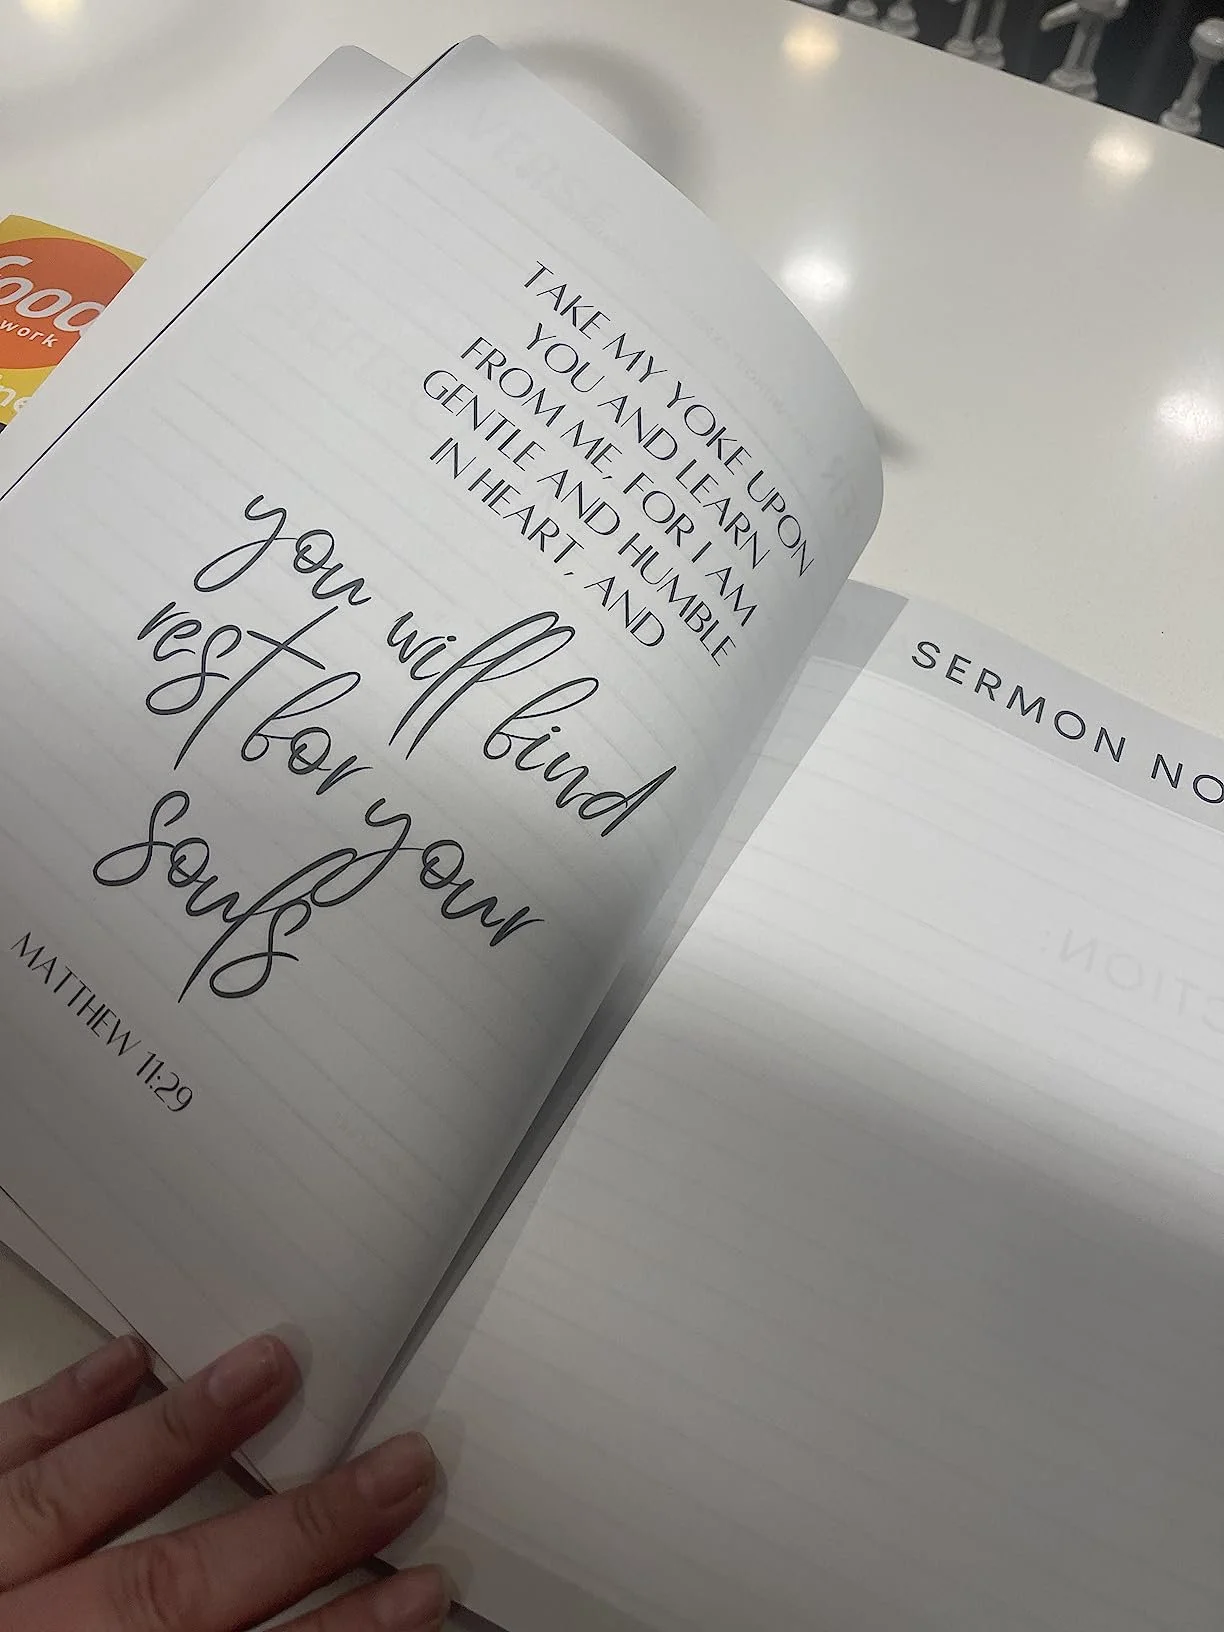 TAKE MY YOKE UPON
YOU AND LEARN
FROM ME, FOR I AM
GENTLE AND HUMBLE
IN HEART, AND
you will find
rest for your
souls
MATTHEW 11:29
SERMON NO
food
work